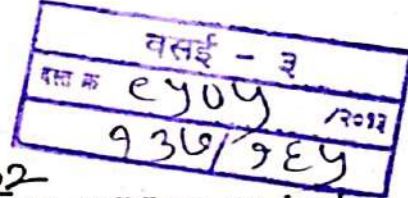 वसई - ३
दस्त क्र ९५७५ /२०१३
१३७/१६५